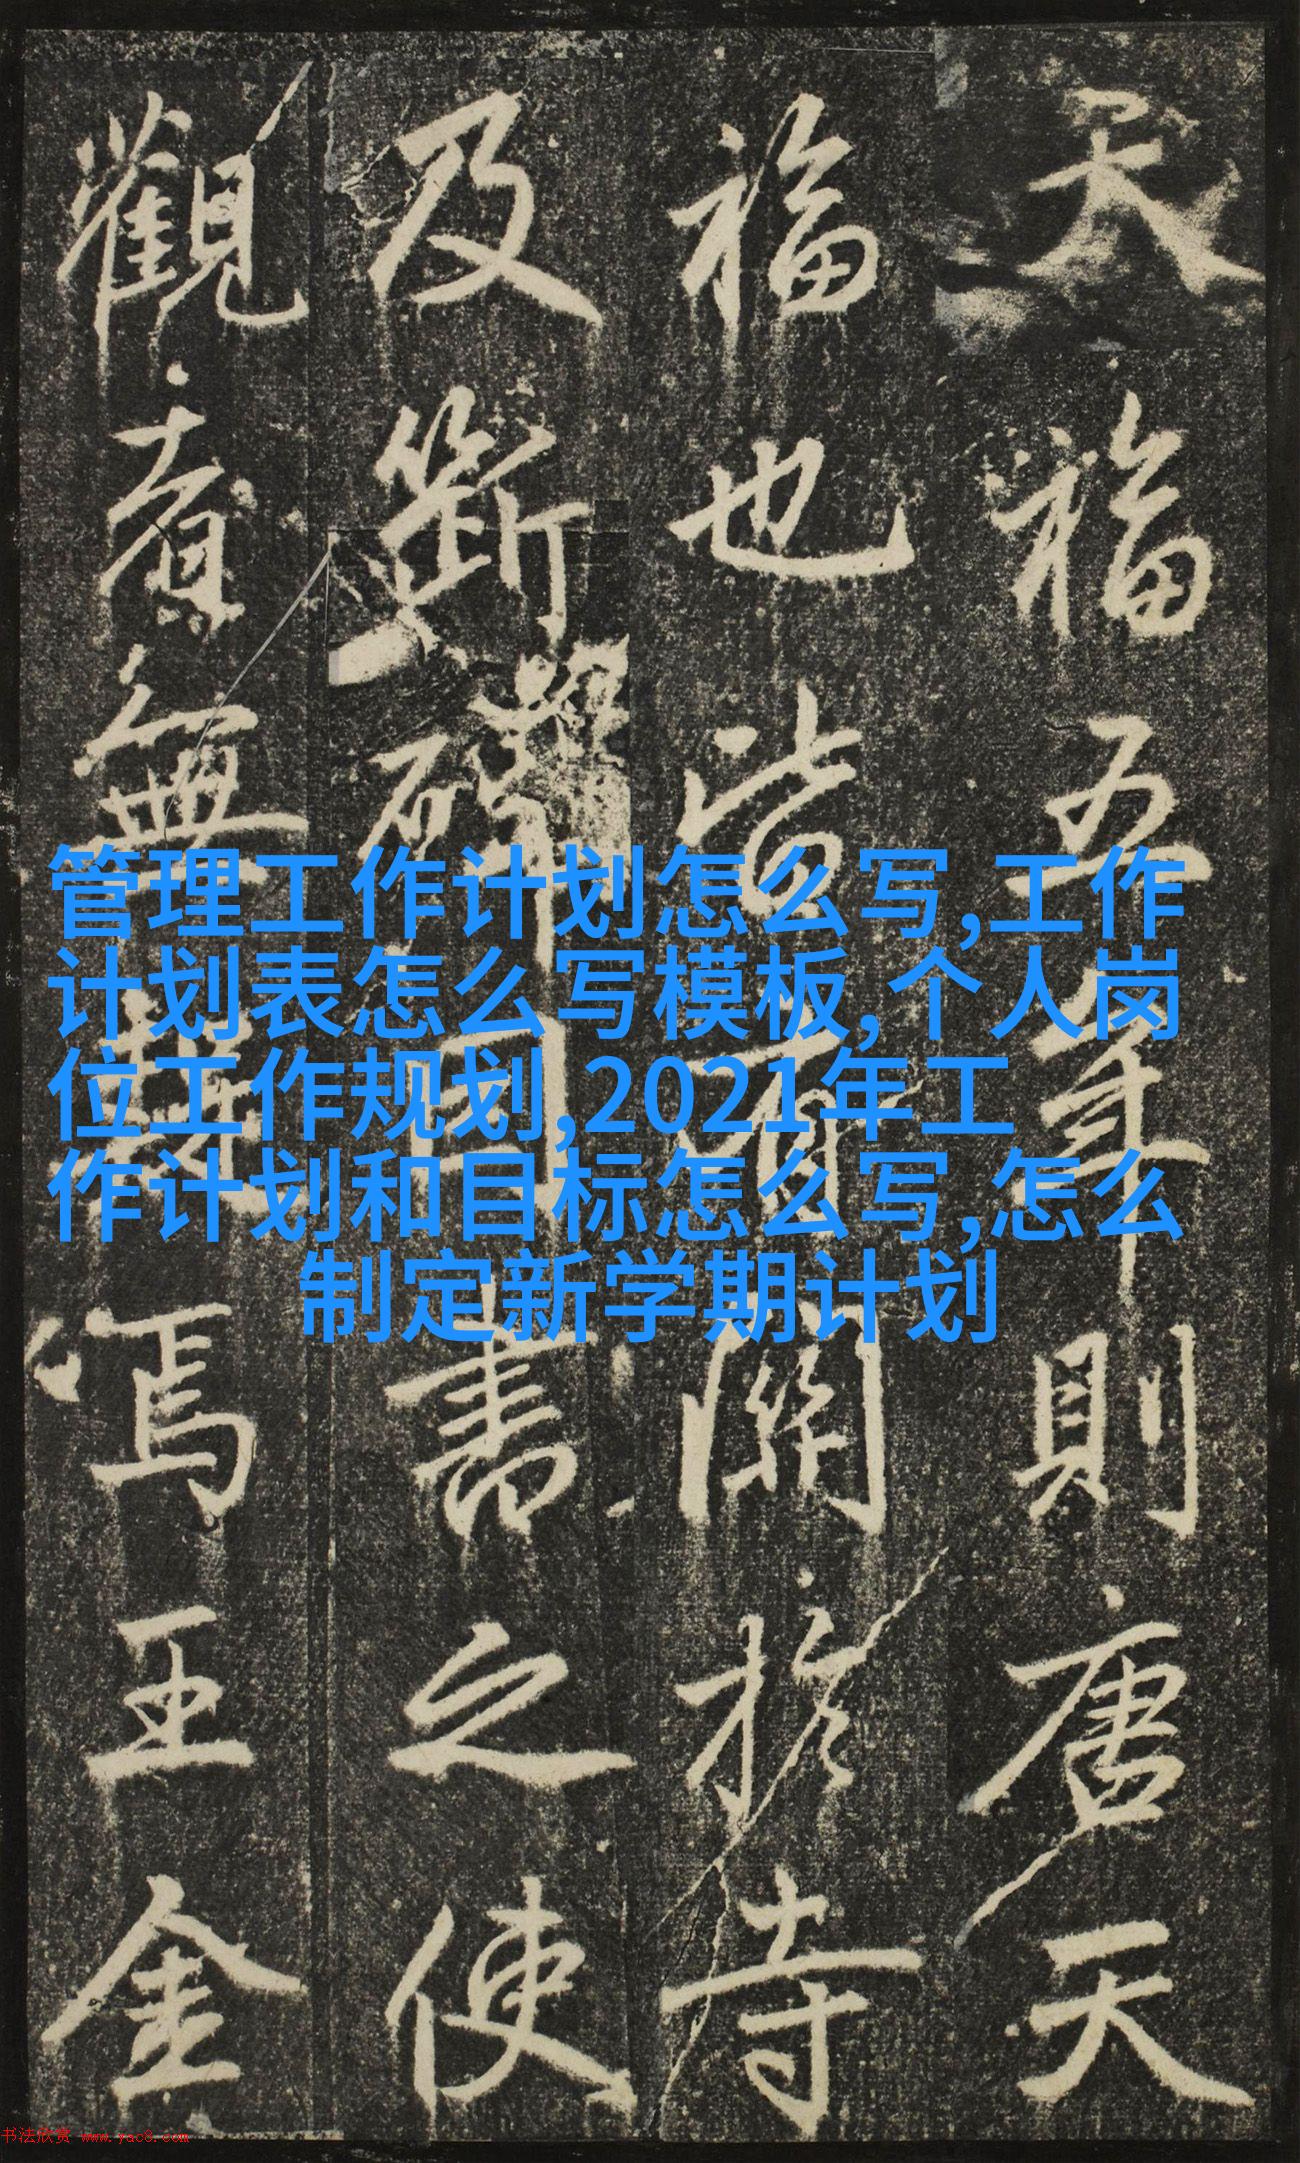 天福五年則唐天
福也皆有關於寺
及斷碑國書之使
觀音無
焉王金
管理工作计划怎么写,工作
计划表怎么写模板,个人岗
位工作规划,2021年工
作计划和目标怎么写,怎么
制定新学期计划
书法欣赏 www.yac8.com